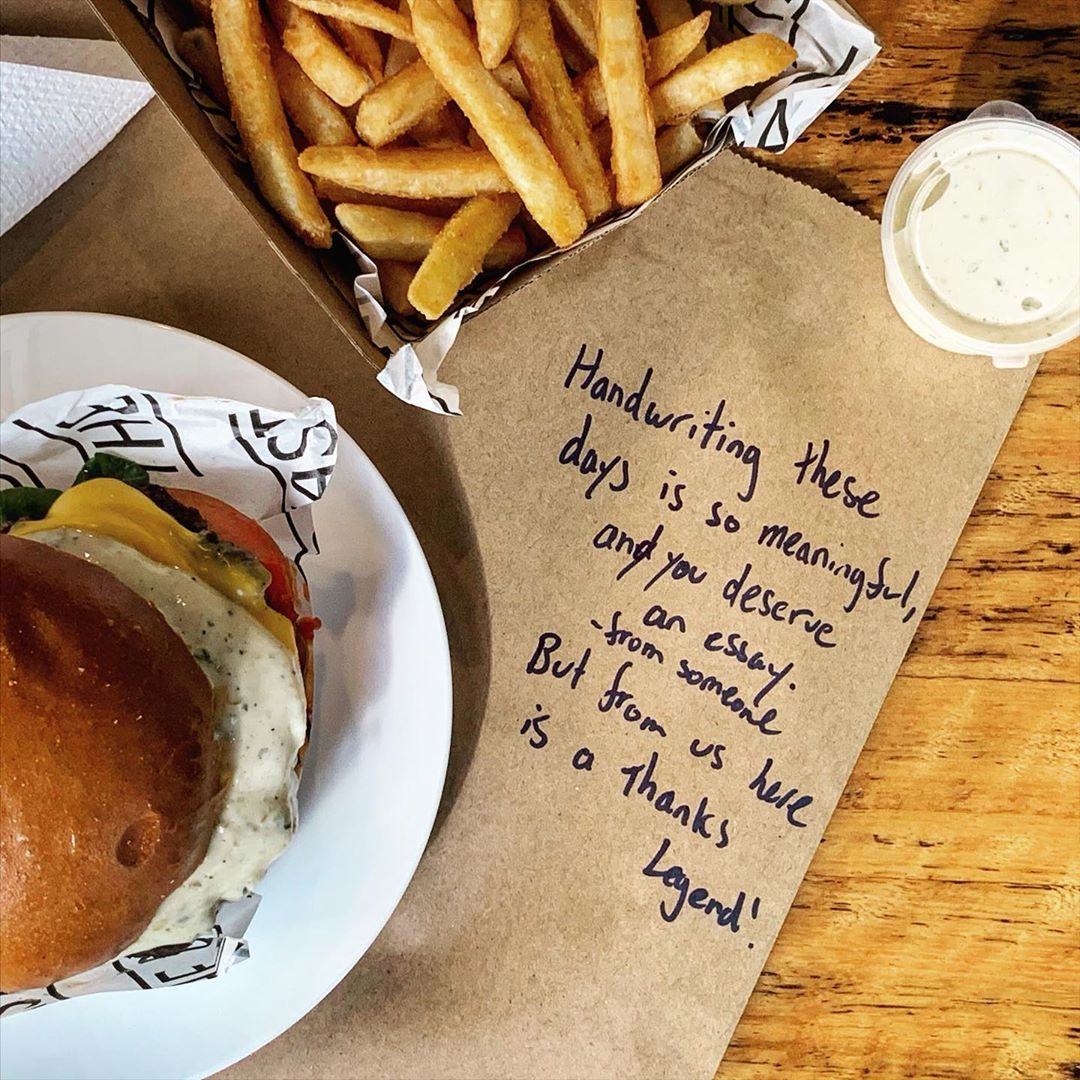 Handwriting these
days is so meaningful,
and you deserve
an essay.
-from someone
But from us here
is a Thanks
Legend!